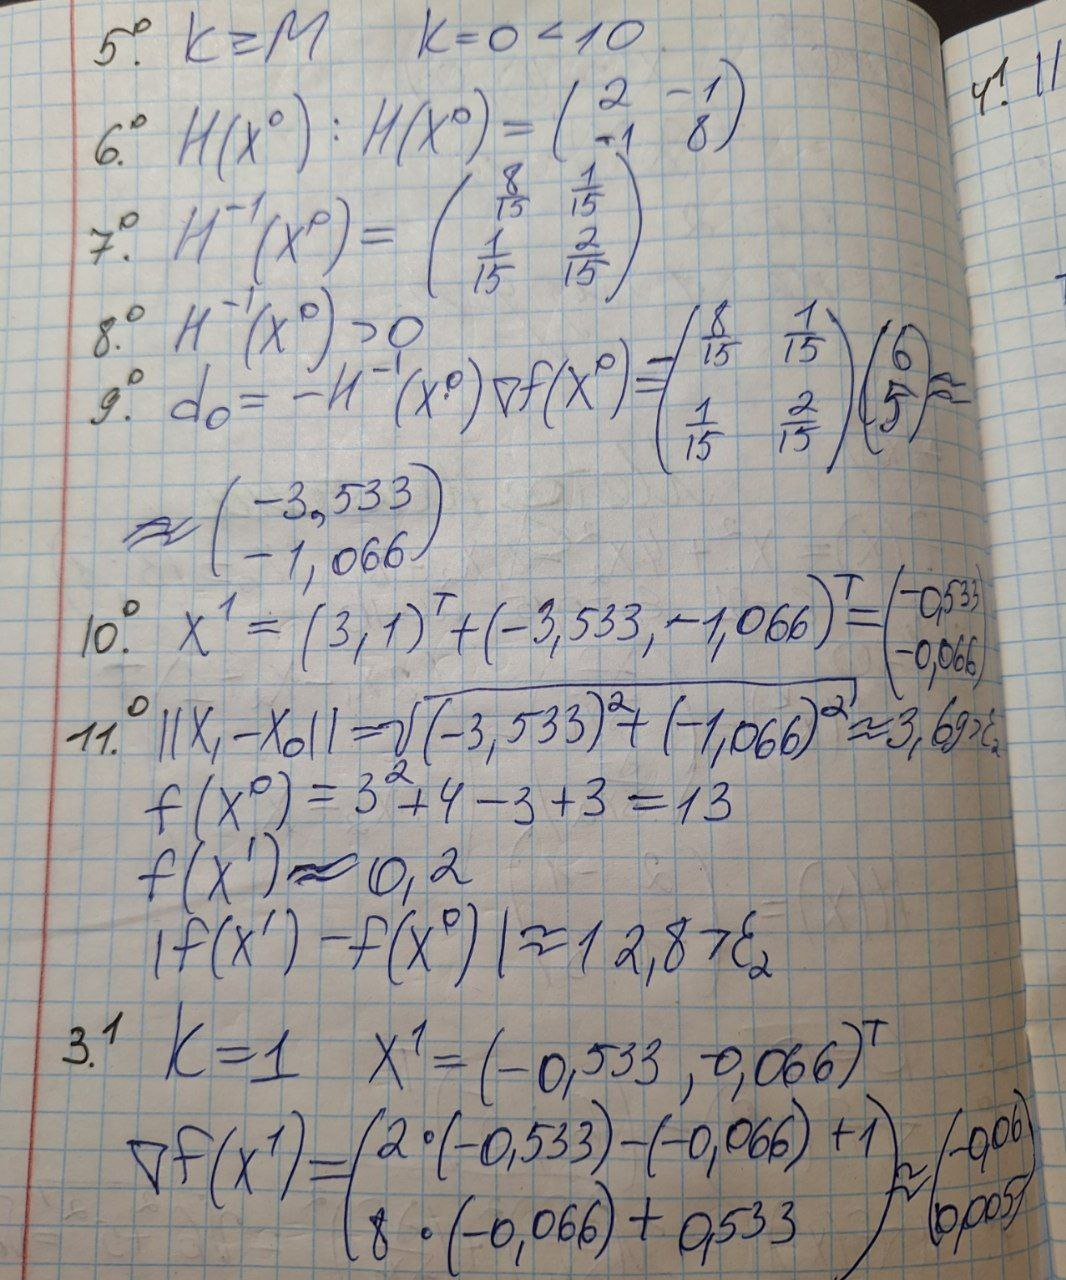 5.⁰ K ≥ M K = 0 < 10
6.⁰ H(x⁰) : H(x⁰) = ( 2 -1
-1 8 )
7.⁰ H⁻¹(x⁰) = ( 8/15 1/15
1/15 2/15 )
8.⁰ H⁻¹(x⁰) > 0
9.⁰ d₀ = -H⁻¹(x⁰) ∇f(x⁰) = - ( 8/15 1/15
1/15 2/15 ) ( 6
5 ) ≈
≈ ( -3,533
-1,066 )
10.⁰ x¹ = (3, 1)ᵀ + (-3,533, -1,066)ᵀ = ( -0,533
-0,066 )
11.⁰ ||x₁ - x₀|| = √((-3,533)² + (-1,066)²) ≈ 3,69 > ε₂
f(x⁰) = 3² + 4 - 3 + 3 = 13
f(x¹) ≈ 0,2
|f(x¹) - f(x⁰)| ≈ 12,8 > ε₂
3.¹ K = 1 x¹ = (-0,533, -0,066)ᵀ
∇f(x¹) = ( 2·(-0,533) - (-0,066) + 1
8·(-0,066) + 0,533 ) ≈ ( -0,06
0,005 )
4¹. ||